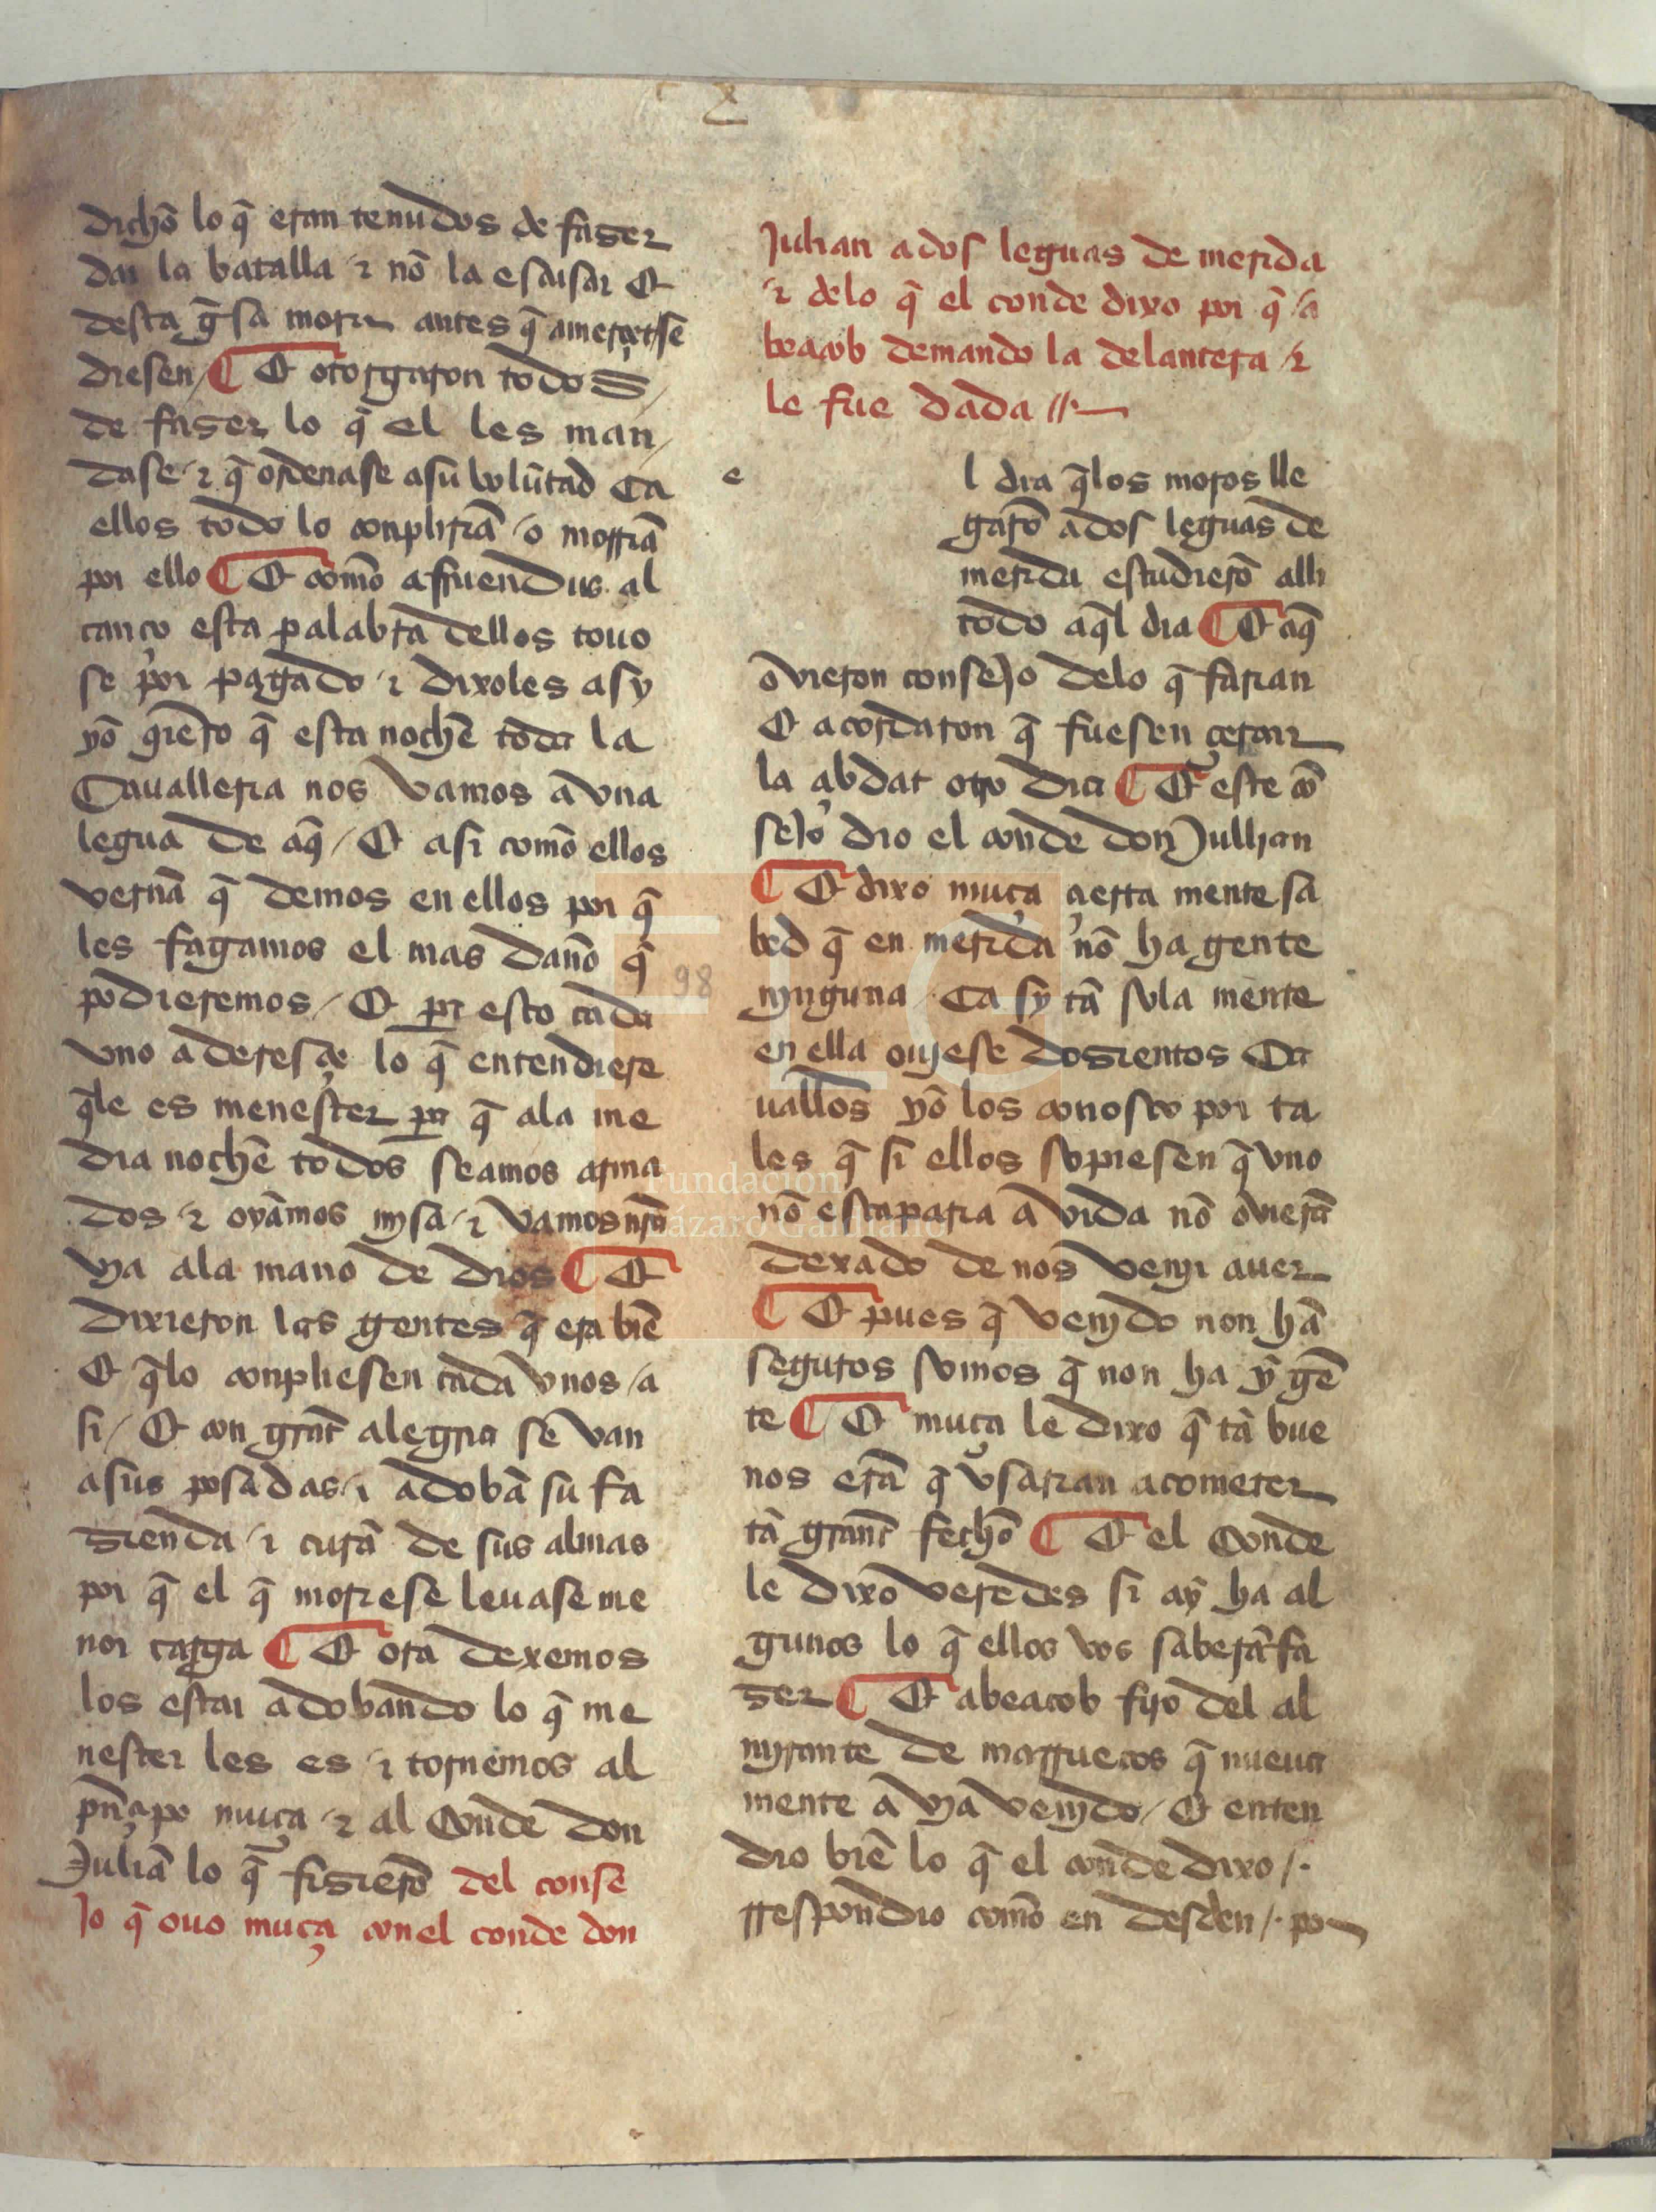 dichō lo q̄ eran tenudos de faser
dar la batalla ⁊ nō la escusar Et
desta g̃sa morir antes q̄ a merçet se
diesen / ¶ Et otorgaron todos /
de faser lo q̄ el les man /
dase ⁊ q̄ ordenase a su volūtad Ca
ellos todo lo conplirīa / o morrīa
por ello ¶ Et comō affuendus al
canço esta palabra dellos touo
se por pagado ⁊ dixoles asy
yō q̄iero q̄ esta nochē toda la
Cauallerıa nos vamos a vna
legua de aq̄ / Et asi comō ellos
vernā q̄ demos en ellos por q̄
les fagamos el mas dan̄o q̄
podieremos / Et por esto cada
vno aderesçe lo q̄ entendiere
q̄le es menester por q̄ a la me
dia nochē todos seamos arma
dos ⁊ oyāmos mysa ⁊ vamos nr̄a
vya a la mano de dios ¶ Et
dixieron las gentes q̄ era biē
Et q̄lo conpliesen cada vnos / a
si / Et con grant alegria se van
a sus posadas ⁊ adobā su fa
sienda ⁊ curā de sus almas
por q̄ el q̄ moriese leuase me
nor carga ¶ Et ora dexemos
los estar adobando lo q̄ me
nester les es ⁊ tornemos al
pn̄çipo muça ⁊ al Conde don
Juliā lo q̄ fisierō del conse
Jo q̄ ouo muça con el conde don
Julian a dos leguas de merida
⁊ de lo q̄ el conde dixo por q̄ / a
beacob demando la delantera ⁊
le fue dada //·
e l dia q̄los moros lle
garō a dos leguas de
merida estudierō alli
todo aq̄l dia ¶ Et aq̄
ovieron consejo de lo q̄ farian
Et acordaron q̄ fuesen çercar
la çibdat otro dia ¶ Et este cō
sejo dio el conde don Jullian
¶ Et dixo muça çierta mente sa
bed q̄ en merida nō ha gente
nynguna / Ca sy tā sola mente
en ella ouyese dosientos Ca
uallos yō los conosco por ta
les q̄ si ellos sopiesen q̄ vno
nō escaparia a vida nō ovierā
dexado de nos venyr a uer
¶ Et pues q̄ venydo non hā
seguros somos q̄ non ha y gē
te ¶ Et muça le dixo q̄ tā bue
nos erā q̄ vsarian acometer
tā grant fechō ¶ Et el Conde
le dixo veredes si ay ha al
gunos lo q̄ ellos vos saberā fa
ser ¶ Et abeacob fijo del al
myrante de marruecos q̄ nueua
mente a vya venydo / Et enten
dio biē lo q̄ el conde dixo /·
rrespondio comō en desden /· por
98
FLG
Fundación
Lázaro Galdiano